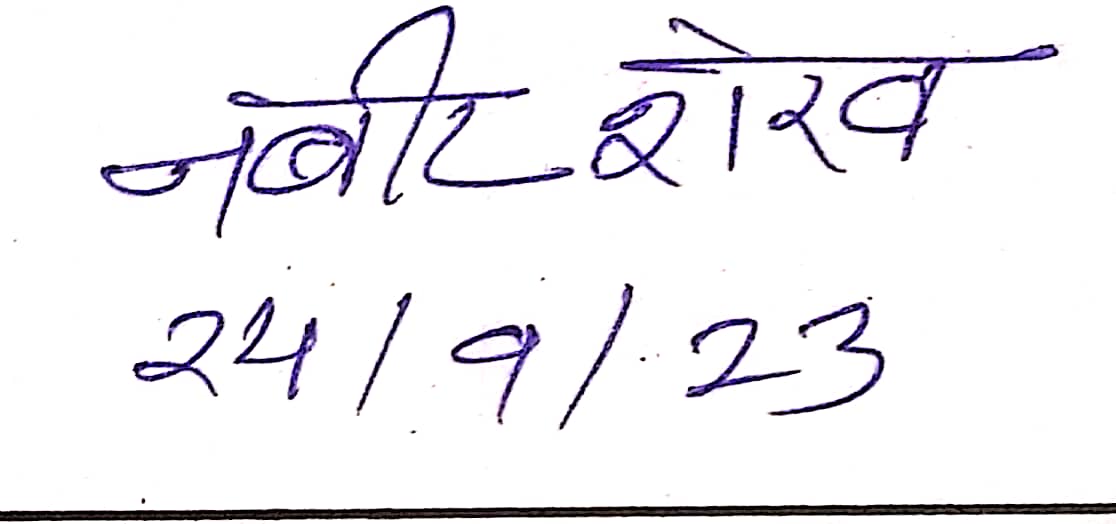 नबीट शेख
24/9/23